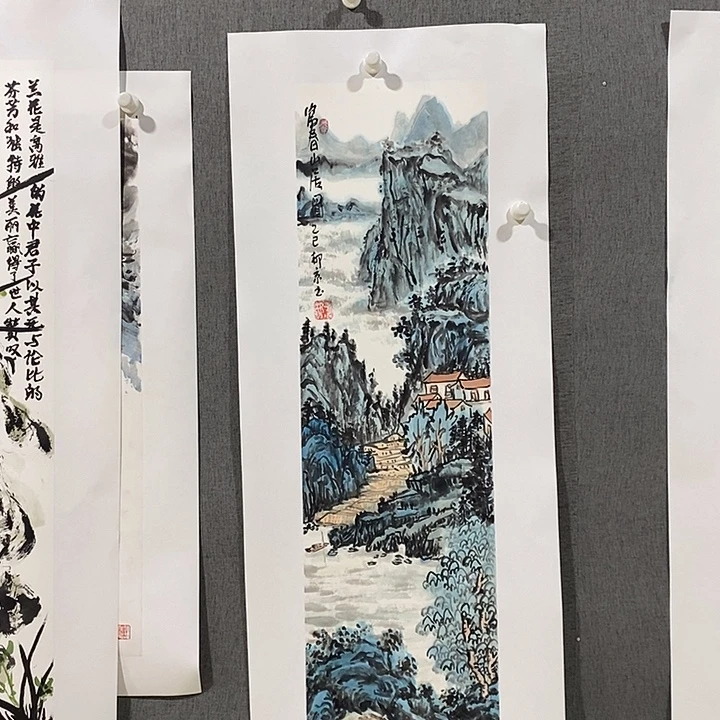 兰花是高雅的花中君子以其无与伦比的
芬芳和独特的美丽赢得了世人赞叹
富春山居图乙巳